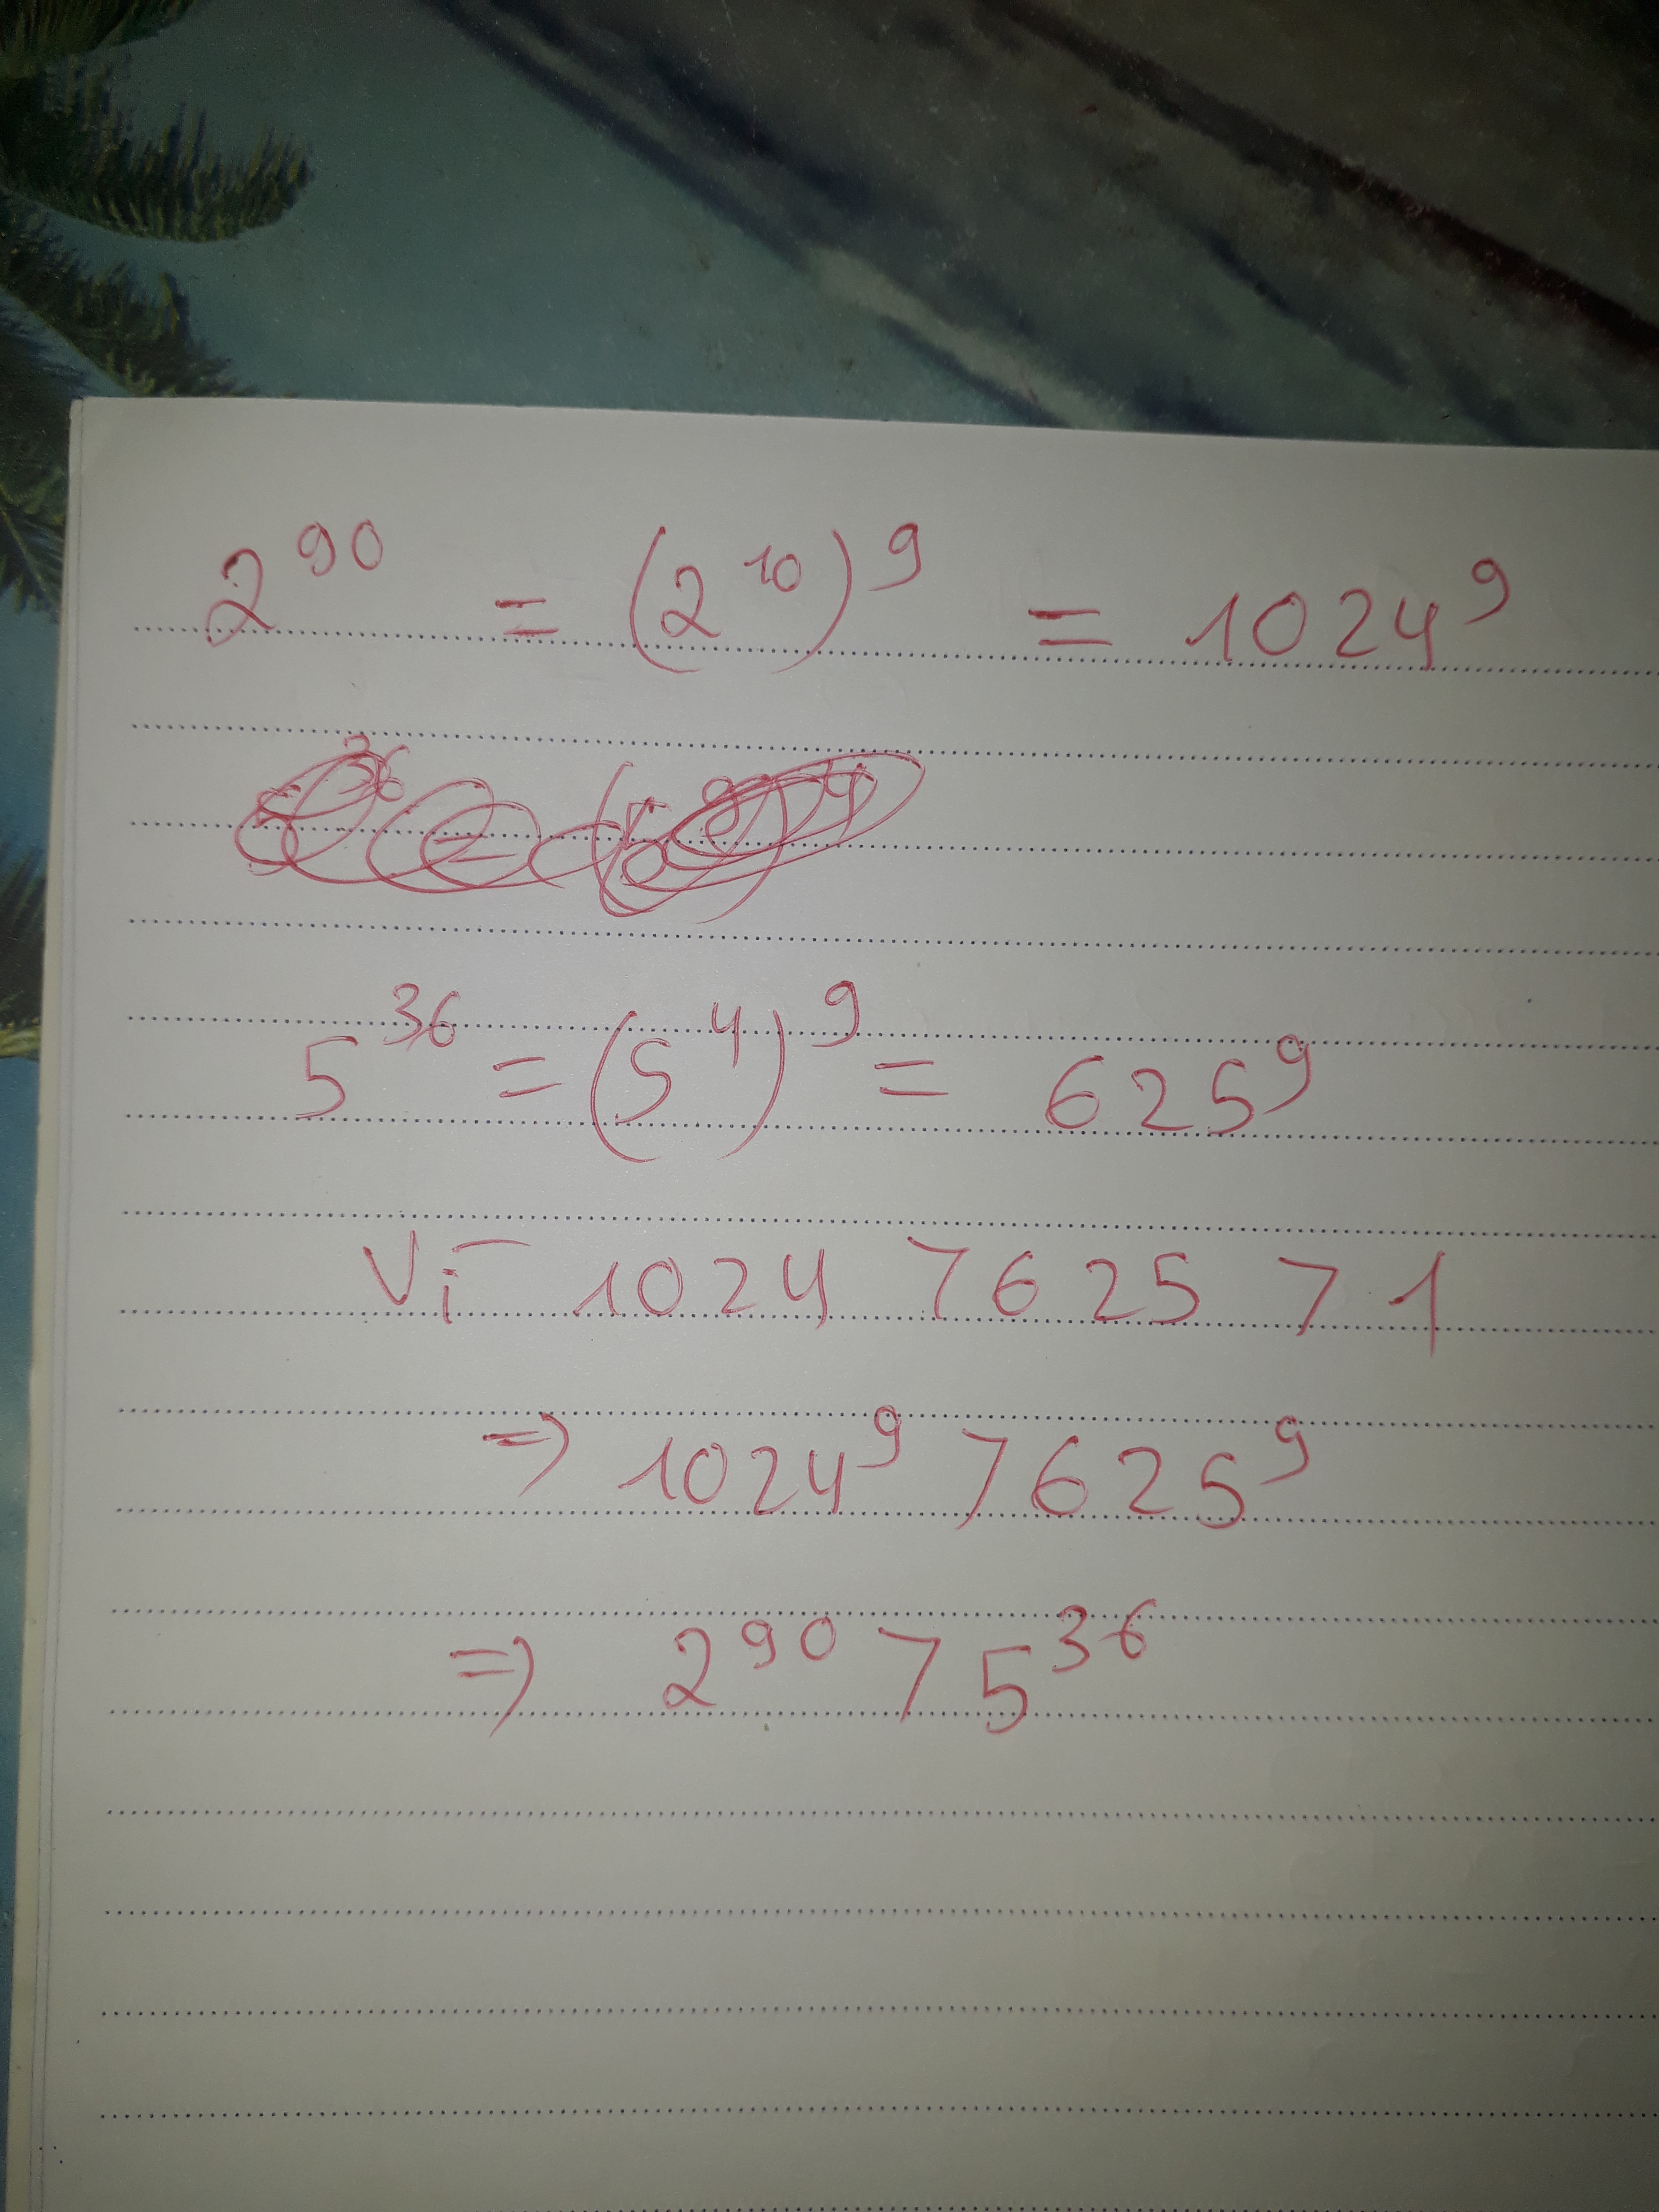 2^90 = (2^10)^9 = 1024^9
5^36 = (5^4)^9 = 625^9
Vì 1024 > 625 > 1
=> 1024^9 > 625^9
=> 2^90 > 5^36